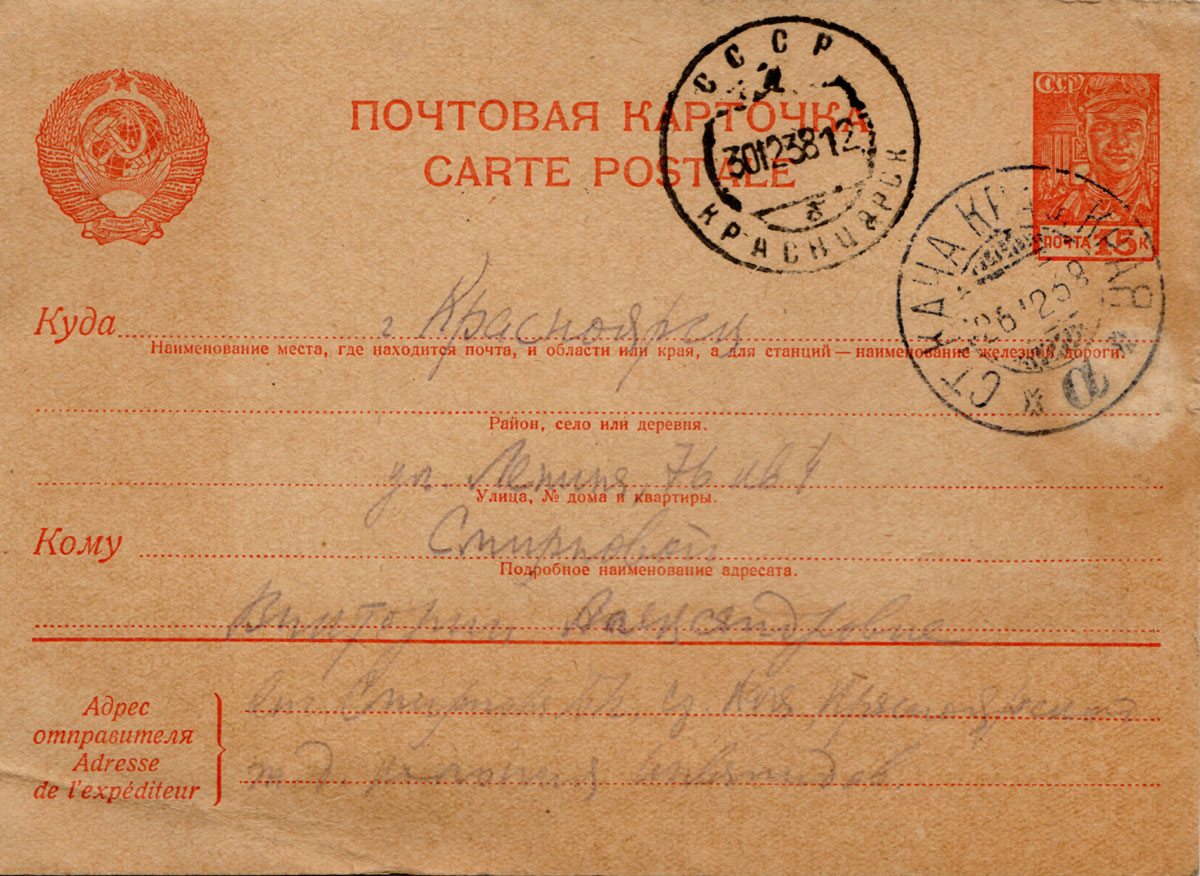 СССР
КРАСНОЯРСК
30 12 38 12
б
ПОЧТОВАЯ КАРТОЧКА
CARTE POSTALE
СССР
ПОЧТА 15 К
СТ КАЧА КРАС
26 12 38
а
Куда г Красноярск
Наименование места, где находится почта, и области или края, а для станций — наименование железной дороги.
Район, село или деревня.
ул. Ленина, 76 кв 4
Улица, № дома и квартиры.
Кому Смирновой
Подробное наименование адресата.
Виктории Александровне
Адрес
отправителя
Adresse
de l'expéditeur
Кача Красноярской
инвалидов